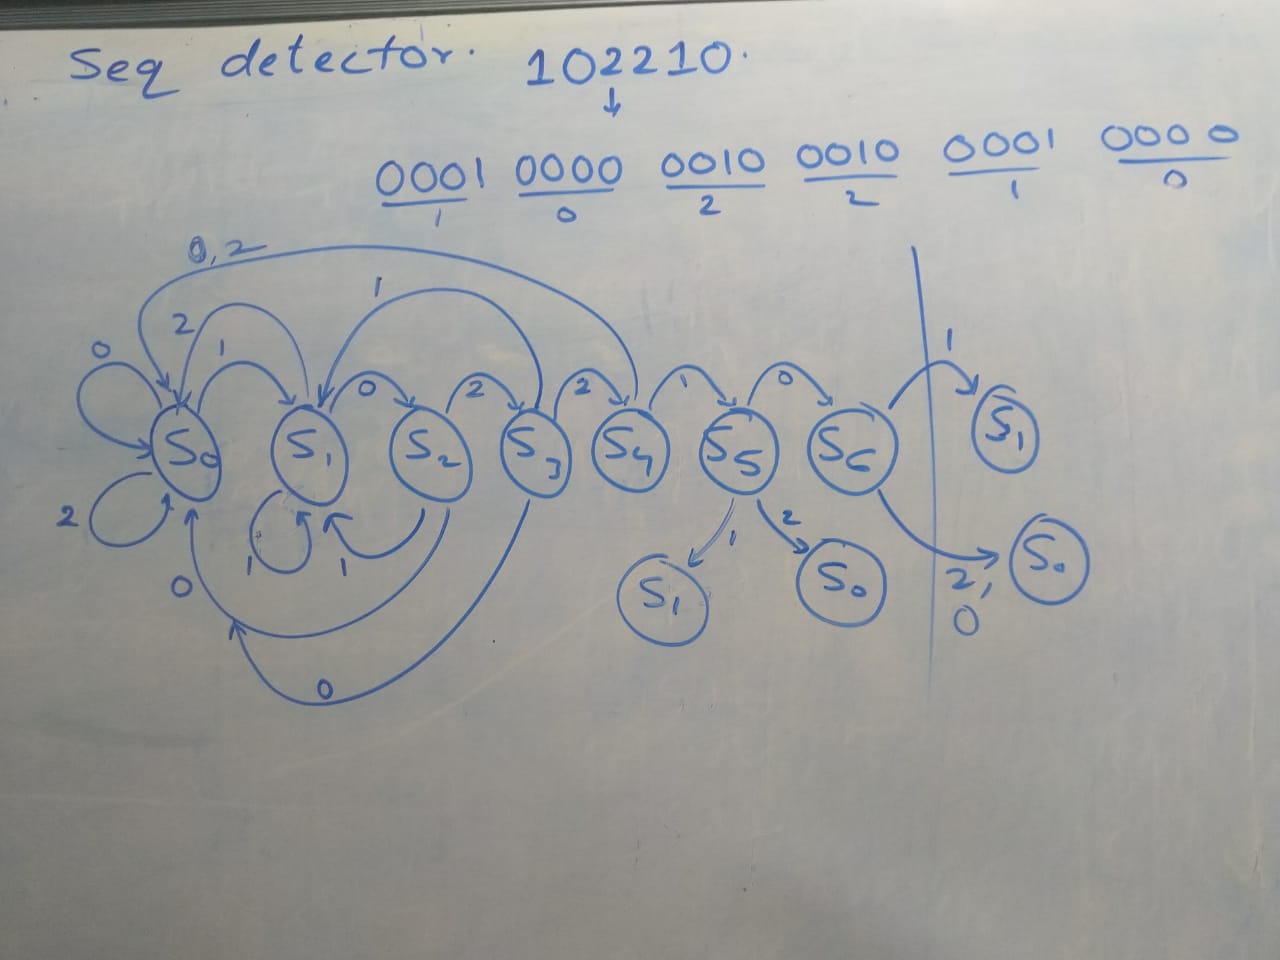 Seq detector. 102210.
0001 0000 0010 0010 0001 0000
1 0 2 2 1 0
0,2
1
2
1
0
0
2
2
1
0
1
S0 S1 S2 S3 S4 S5 S6 S1
2
1
1
0
1
2
S1 S0 S0
2,
0
0